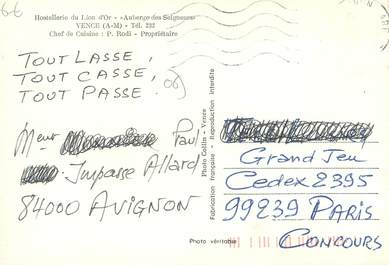 6€
Hostellerie du Lion d'Or - «Auberge des Seigneurs»
VENCE (A-M) - Tél. 232
Chef de Cuisine : P. Rodi - Propriétaire
TOUT LASSE,
TOUT CASSE,
TOUT PASSE. (06)
Meur Paul
Impasse Allard
84000 AVIGNON
Photo Collin - Vence
Fabrication française - Reproduction interdite
Grand Jeu
Cedex 2395
99239 PARIS
CONCOURS
Photo véritable